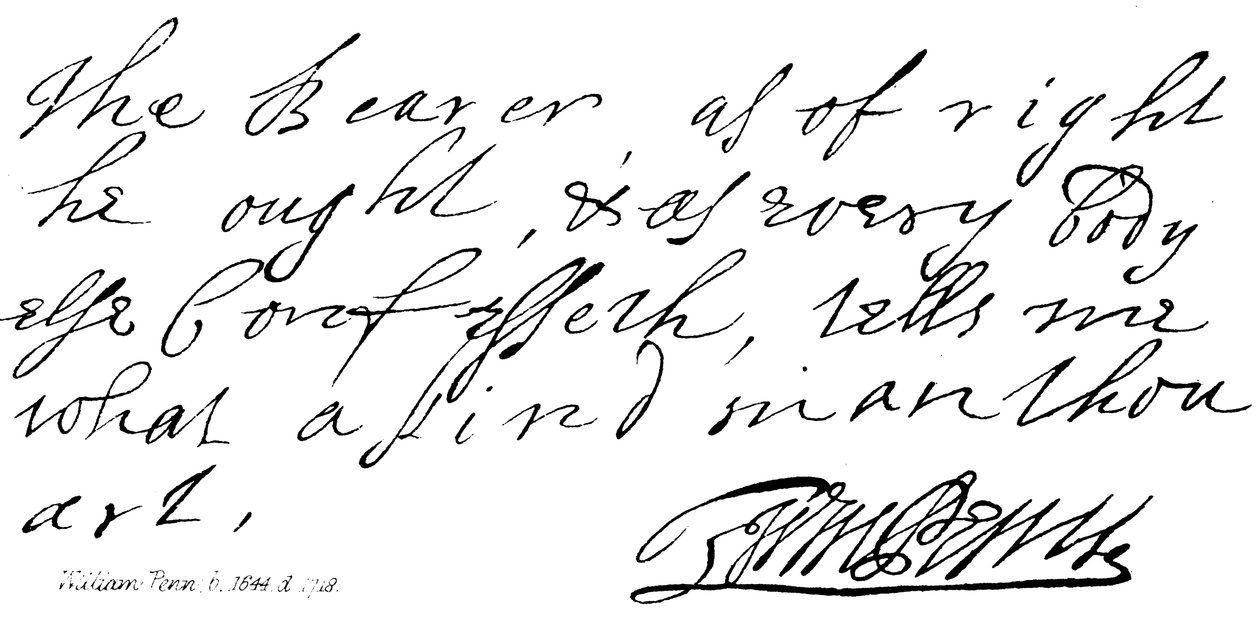 The Bearer, as of right
he ought, & as every body
else Confesseth, tells me
what a kind man thou
art,
Wm Penn
William Penn, b. 1644. d. 1718.